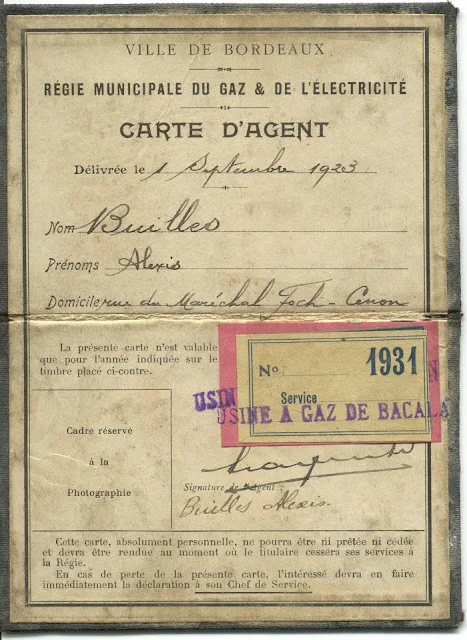 VILLE DE BORDEAUX
RÉGIE MUNICIPALE DU GAZ & DE L'ÉLECTRICITÉ
CARTE D'AGENT
Délivrée le 1 Septembre 1923
Nom Builles
Prénoms Alexis
Domicile rue du Maréchal Foch - Cenon
La présente carte n'est valable
que pour l'année indiquée sur le
timbre placé ci-contre.
No 1931
Service
USIN N
USINE A GAZ DE BACALA
Cadre réservé
à la
Photographie
Signature de l'Agent :
Builles Alexis.
Cette carte, absolument personnelle, ne pourra être ni prêtée ni cédée
et devra être rendue au moment où le titulaire cessera ses services à
la Régie.
En cas de perte de la présente carte, l'intéressé devra en faire
immédiatement la déclaration à son Chef de Service.